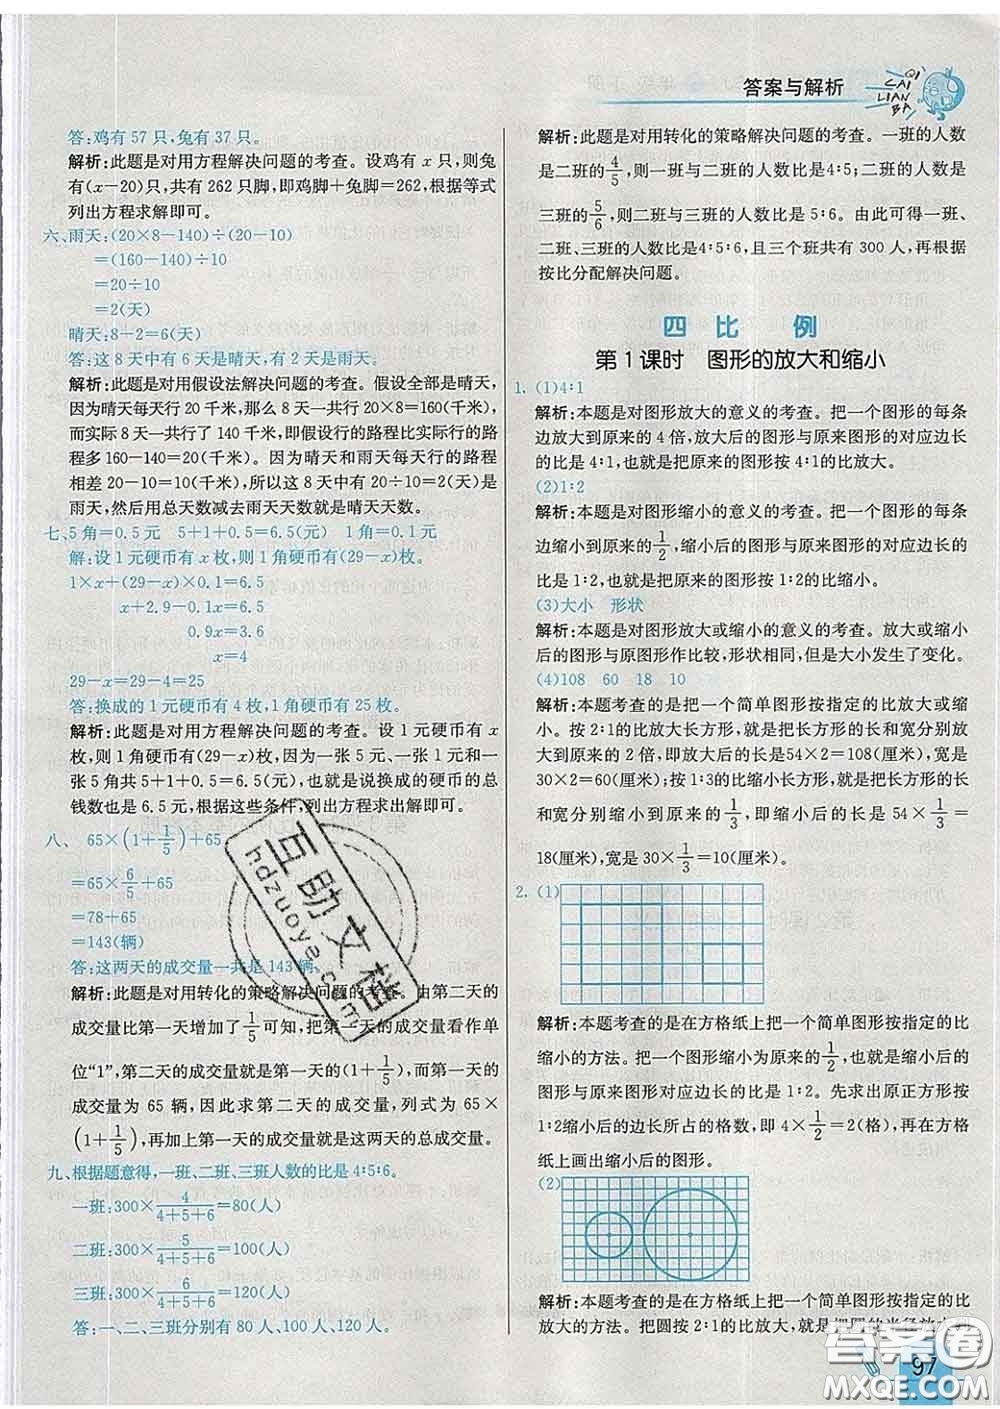 答案与解析
QI
CAI
LIAN
BA
答:鸡有 57 只,兔有 37 只。
解析:此题是对用方程解决问题的考查。设鸡有 x 只,则兔
有(x-20)只,共有 262 只脚,即鸡脚+兔脚=262,根据等式
列出方程求解即可。
六、雨天:(20×8-140)÷(20-10)
=(160-140)÷10
=20÷10
=2(天)
晴天:8-2=6(天)
答:这 8 天中有 6 天是晴天,有 2 天是雨天。
解析:此题是对用假设法解决问题的考查。假设全部是晴天,
因为晴天每天行 20 千米,那么 8 天一共行 20×8=160(千米),
而实际 8 天一共行了 140 千米,即假设行的路程比实际行的路
程多 160-140=20(千米)。因为晴天和雨天每天行的路程
相差 20-10=10(千米),所以这 8 天中有 20÷10=2(天)是
雨天,然后用总天数减去雨天天数就是晴天天数。
七、5 角=0.5 元 5+1+0.5=6.5(元) 1 角=0.1 元
解:设 1 元硬币有 x 枚,则 1 角硬币有(29-x)枚。
1×x+(29-x)×0.1=6.5
x+2.9-0.1x=6.5
0.9x=3.6
x=4
29-x=29-4=25
答:换成的 1 元硬币有 4 枚,1 角硬币有 25 枚。
解析:此题是对用方程解决问题的考查。设 1 元硬币有 x
枚,则 1 角硬币有(29-x)枚,因为一张 5 元、一张 1 元和一
张 5 角共有 5+1+0.5=6.5(元),也就是说换成的硬币的总
钱数也是 6.5 元,根据这些条件,列出方程求出解即可。
八、 65×(1+1/5)+65
=65×6/5+65
=78+65
=143(辆)
答:这两天的成交量一共是 143 辆。
解析:此题是对用转化的策略解决问题的考查。由第二天的
成交量比第一天增加了 1/5 可知,把第一天的成交量看作单
位“1”,第二天的成交量就是第一天的(1+1/5),而第一天的
成交量为 65 辆,因此求第二天的成交量,列式为 65×
(1+1/5),再加上第一天的成交量就是这两天的总成交量。
九、根据题意得,一班、二班、三班人数的比是 4∶5∶6。
一班:300×4/(4+5+6)=80(人)
二班:300×5/(4+5+6)=100(人)
三班:300×6/(4+5+6)=120(人)
答:一、二、三班分别有 80 人、100 人、120 人。
解析:此题是对用转化的策略解决问题的考查。一班的人数
是二班的 4/5,则一班与二班的人数比是 4∶5;二班的人数是
三班的 5/6,则二班与三班的人数比是 5∶6。由此可得一班、
二班、三班的人数比是 4∶5∶6,且三个班共有 300 人,再根据
按比分配解决问题。
四 比 例
第 1 课时 图形的放大和缩小
1. (1)4∶1
解析:本题是对图形放大的意义的考查。把一个图形的每条
边放大到原来的 4 倍,放大后的图形与原来图形的对应边长
的比是 4∶1,也就是把原来的图形按 4∶1的比放大。
(2)1∶2
解析:本题是对图形缩小的意义的考查。把一个图形的每条
边缩小到原来的 1/2,缩小后的图形与原来图形的对应边长的
比是 1∶2,也就是把原来的图形按 1∶2的比缩小。
(3)大小 形状
解析:本题是对图形放大或缩小的意义的考查。放大或缩小
后的图形与原图形作比较,形状相同,但大小发生了变化。
(4)108 60 18 10
解析:本题考查的是把一个简单图形按指定的比放大或缩
小。按 2∶1的比放大长方形,就是把长方形的长和宽分别放
大到原来的 2 倍,即放大后的长是54×2=108(厘米),宽是
30×2=60(厘米);按 1∶3的比缩小长方形,就是把长方形的长
和宽分别缩小到原来的 1/3,即缩小后的长是 54×1/3=
18(厘米),宽是 30×1/3=10(厘米)。
2. (1)
解析:本题考查的是在方格纸上把一个简单图形按指定的比
缩小的方法。把一个图形缩小为原来的 1/2,也就是缩小后的
图形与原来图形对应边长的比是 1∶2。先求出原正方形按
1∶2缩小后的边长所占的格数,即 4×1/2=2(格),再在方格
纸上画出缩小后的图形。
(2)
解析:本题考查的是在方格纸上把一个简单图形按指定的比
放大的方法。把圆按 2∶1的比放大,就是把圆的半径放大到
97
互助文档
hdzuoye.com
答案圈
MXQE.COM